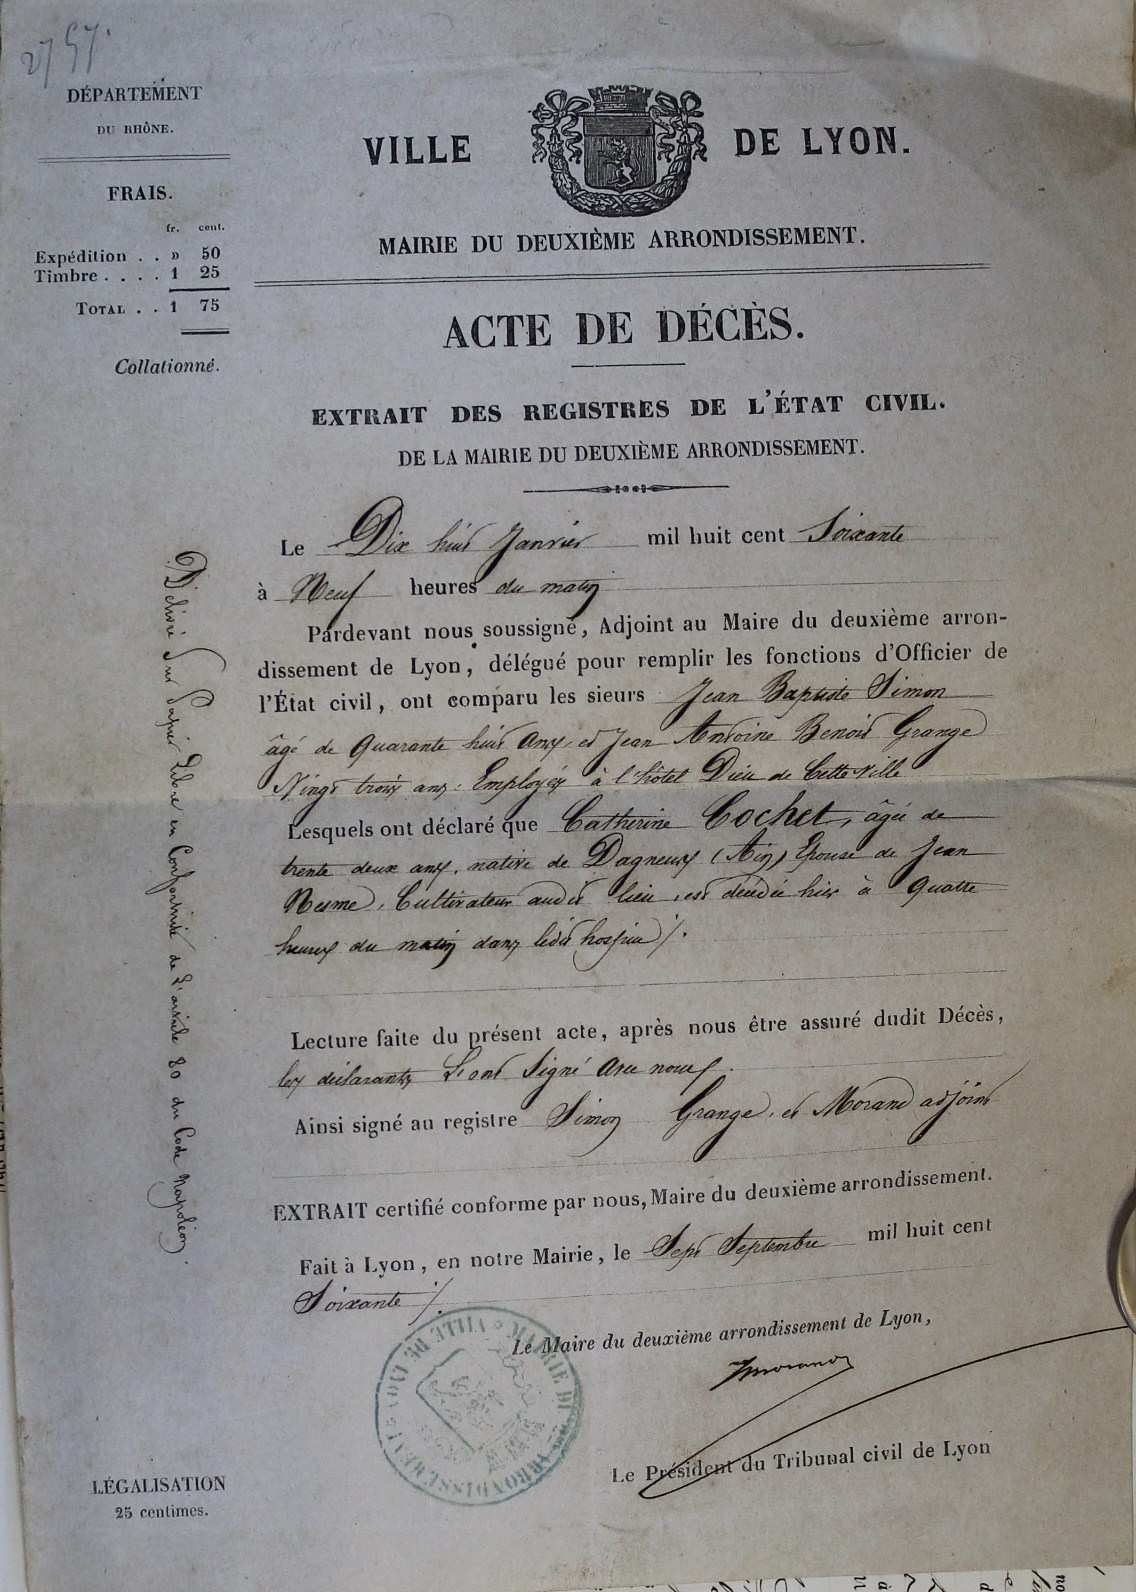 2757.
DÉPARTEMENT
DU RHÔNE.
FRAIS.
fr. cent.
Expédition . . » 50
Timbre . . . . 1 25
TOTAL . . 1 75
Collationné.
VILLE DE LYON.
MAIRIE DU DEUXIÈME ARRONDISSEMENT.
ACTE DE DÉCÈS.
EXTRAIT DES REGISTRES DE L'ÉTAT CIVIL.
DE LA MAIRIE DU DEUXIÈME ARRONDISSEMENT.
Le Dix huit Janvier mil huit cent Soixante
à Neuf heures du matin
Pardevant nous soussigné, Adjoint au Maire du deuxième arron-
dissement de Lyon, délégué pour remplir les fonctions d'Officier de
l'État civil, ont comparu les sieurs Jean Baptiste Simon
âgé de Quarante huit ans, et Jean Antoine Benoit Grange
Vingt trois ans. Employés à l'hôtel Dieu de Cette ville
Lesquels ont déclaré que Catherine Cochet, âgée de
trente deux ans, native de Dagneux (Ain) Epouse de Jean
Nesme, Cultivateur audit lieu, est décédée hier à Quatre
heures du matin dans ledit hospice /.
Lecture faite du présent acte, après nous être assuré dudit Décès,
les déclarants L'ont Signé avec nous.
Ainsi signé au registre Simon Grange, et Morand adjoint
EXTRAIT certifié conforme par nous, Maire du deuxième arrondissement.
Fait à Lyon, en notre Mairie, le Sept Septembre mil huit cent
Soixante /.
Le Maire du deuxième arrondissement de Lyon,
Morand
Le Président du Tribunal civil de Lyon
Délivré Sur Papier Libre en Conformité de l'article 80 du Code Napoléon.
MAIRIE DU 2me ARRONDISSEMENT VILLE DE LYON
LÉGALISATION
25 centimes.